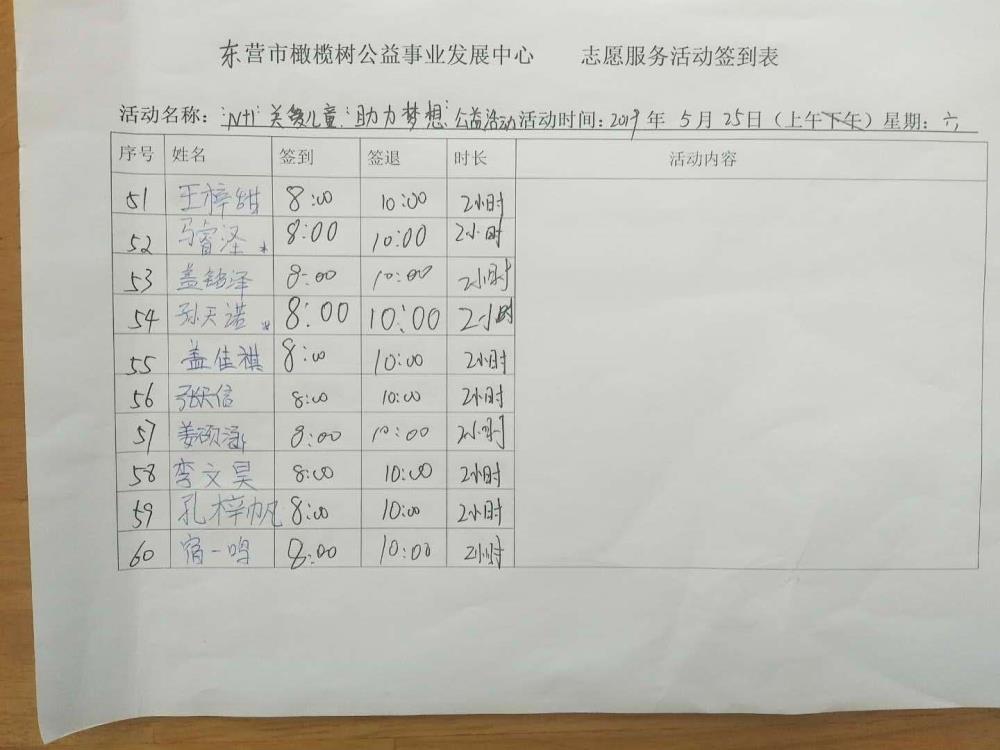 东营市橄榄树公益事业发展中心 志愿服务活动签到表
活动名称："NHI"关爱儿童"助力梦想"公益活动 活动时间：2019年 5月 25日（上午下午）星期：六
序号 姓名 签到 签退 时长 活动内容
51 王梓甜 8:00 10:00 2小时
52 马睿泽 * 8:00 10:00 2小时
53 盖铭泽 8:00 10:00 2小时
54 孙天诺 * 8:00 10:00 2小时
55 盖佳祺 8:00 10:00 2小时
56 张天信 8:00 10:00 2小时
57 姜硕涵 8:00 10:00 2小时
58 李文昊 8:00 10:00 2小时
59 孔梓帆 8:00 10:00 2小时
60 宿一鸣 8:00 10:00 2小时